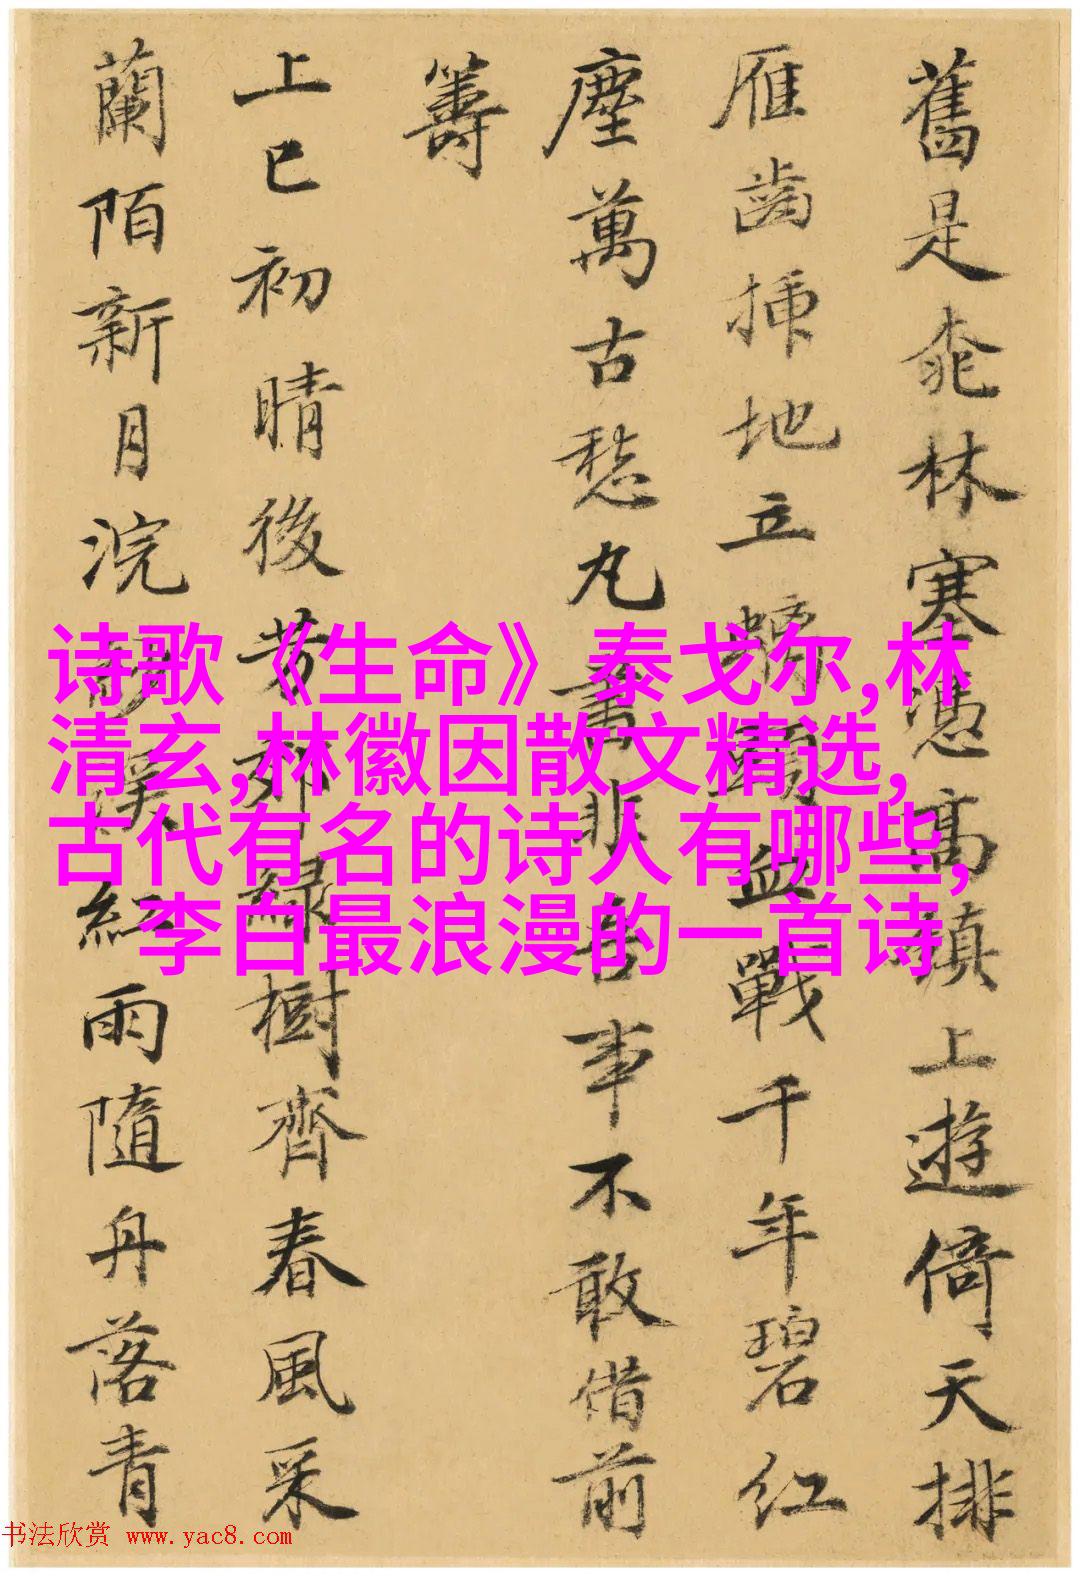 舊是桃林塞憑高鎮上遊倚天排
雁齒插地立螭頭血戰千年碧紅
塵萬古愁丸書非吾事不敢借前
籌
上巳初晴後芳郊綠樹齊春風采
蘭陌新月浣紗溪紅雨隨丹落青
诗歌《生命》泰戈尔,林
清玄,林徽因散文精选,
古代有名的诗人有哪些,
李白最浪漫的一首诗
书法欣赏 www.yac8.com